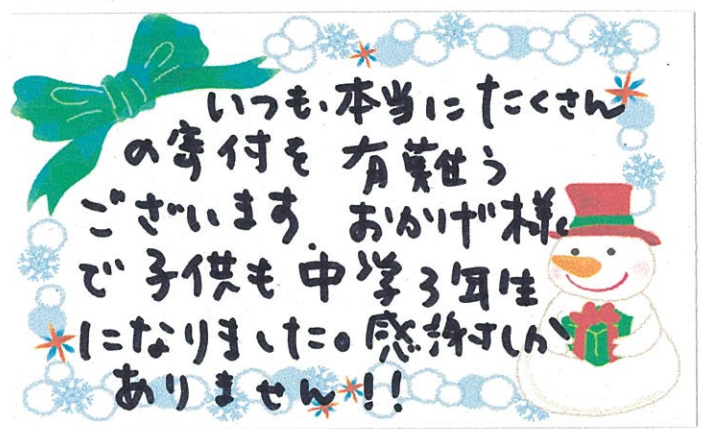 いつも、本当にたくさん
の寄付を 有難う
ございます。おかげ様
で子供も中学3年生
になりました。感謝しか
ありません!!